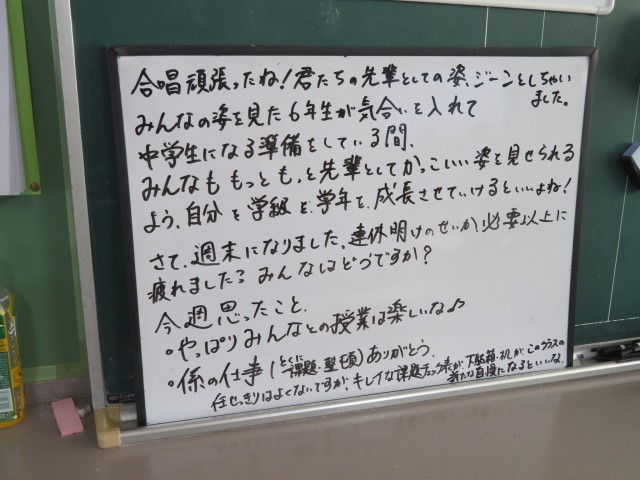 合唱頑張ったね!君たちの先輩としての姿、ジーンとしちゃい
ました。
みんなの姿を見た6年生が気合いを入れて
中学生になる準備をしている間、
みんなももっともっと先輩としてかっこいい姿を見せられる
よう、自分を学級を、学年を、成長させていけるといいよね!
さて、週末になりました、連休明けのせいか必要以上に
疲れました? みんなはどうですか?
今週思ったこと、
・やっぱりみんなとの授業は楽しいな♪
・係の仕事(とくに課題・整頓)ありがとう。
任せっきりはよくないですが、キレイな課題チェック表が、下駄箱・机が、このクラスの
新たな自慢になるといいな。